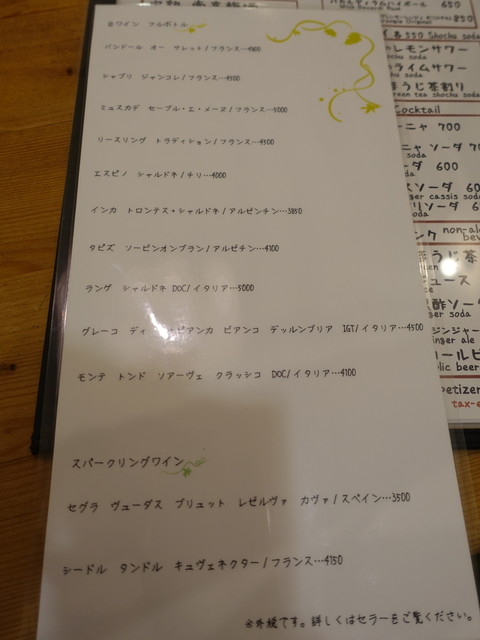 白ワイン フルボトル
バンドール オー サレット/フランス…4900
シャブリ ジャンコレ/フランス…4900
ミュスカデ セーブル・エ・メーヌ/フランス…5000
リースリング トラディション/フランス…4500
エスピノ シャルドネ/チリ…4000
インカ トロンテス・シャルドネ/アルゼンチン…3850
タピズ ソービニオンブラン/アルゼチン…4100
ランゲ シャルドネ DOC/イタリア…5000
グレーコ ディ ビアンカ ビアンコ デッルンブリア IGT/イタリア…4500
モンテ トンド ソアーヴェ クラッシコ DOC/イタリア…4100
スパークリングワイン
セグラ ヴューダス ブリュット レゼルヴァ カヴァ/スペイン…3500
シードル タンドル キュヴェネクター/フランス…4150
※外税です。詳しくはセラーをご覧ください。
650
850
& 550 Shochu soda
レモンサワー
ライムサワー
ほうじ茶割り
green tea shochu soda
Cocktail
ーニャ 700
ニャ ソーダ 7
soda
ーダ 600
スソーダ 60
ger cassis soda
リソーダ 6
soda
ンク non-al
bev
うじ茶
ュース
酢ソー
ger soda
ジンジャー
inger ale
ールビ
lic beer
petizer
tax-e